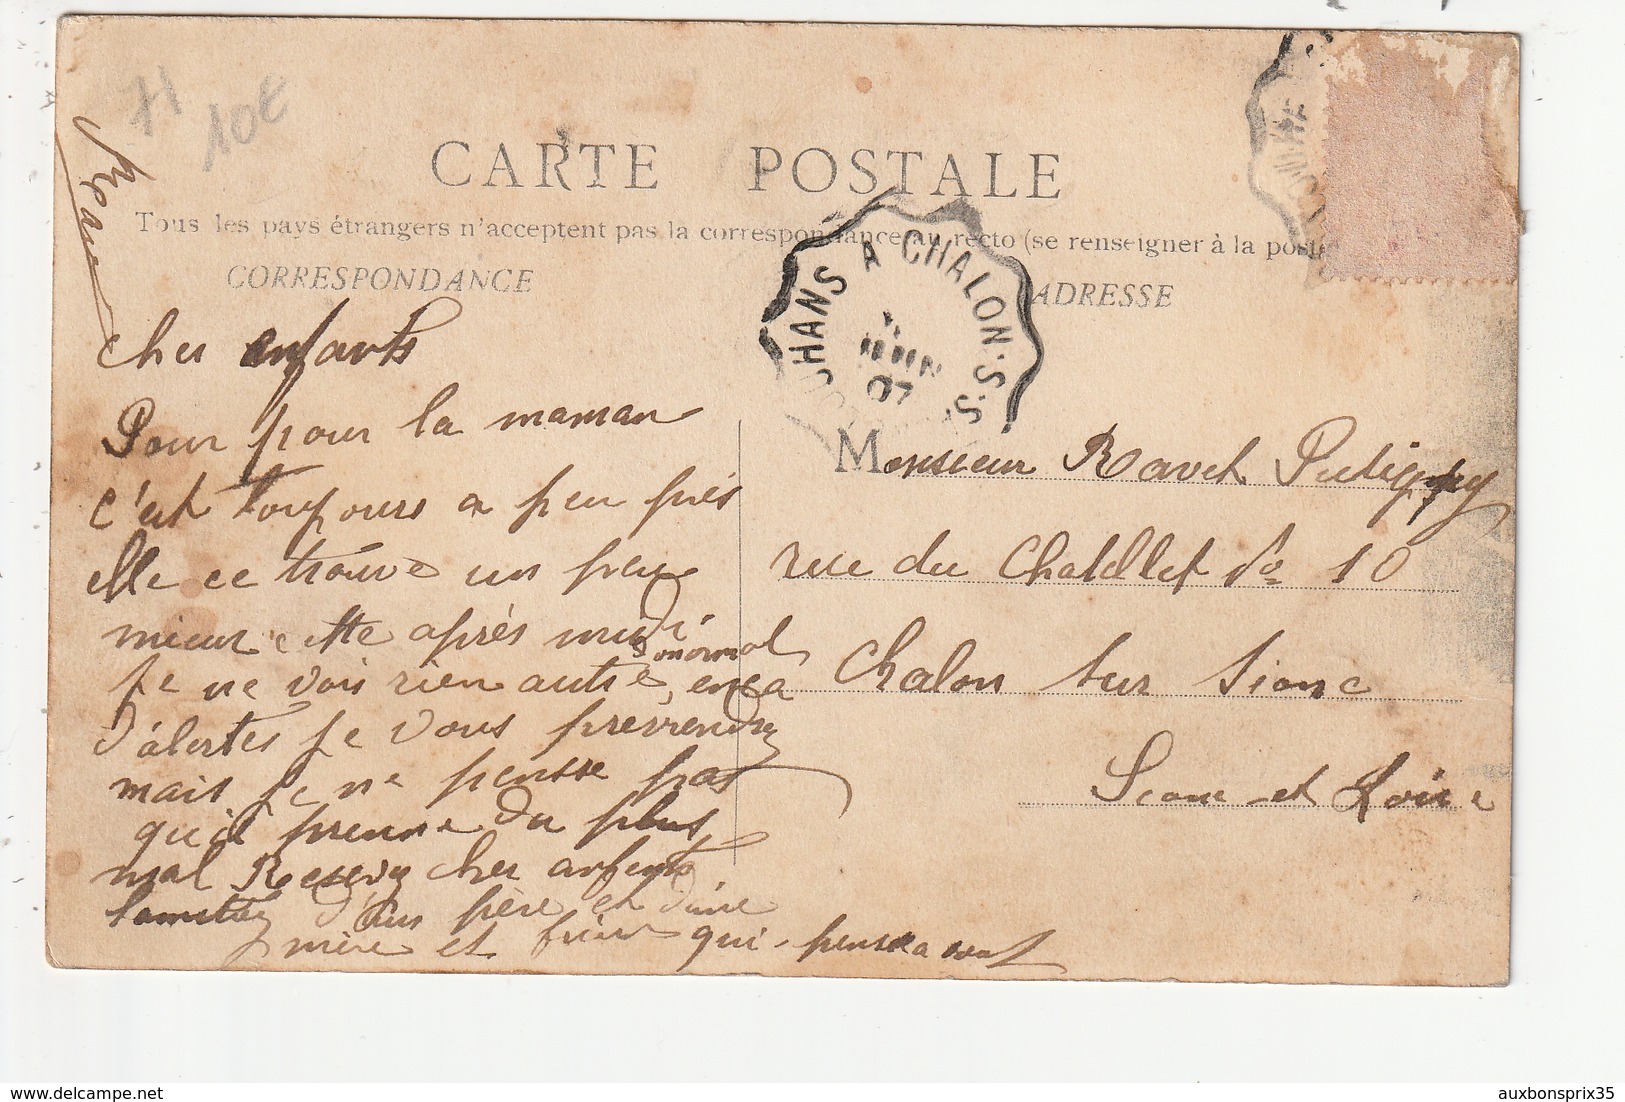 71
10€
CARTE POSTALE
Tous les pays étrangers n'acceptent pas la correspondance au recto (se renseigner à la poste
CORRESPONDANCE
ADRESSE
HANS A CHALON-S-S.
07
cher enfants
Pour pour la maman
c'est toujours a peu près
elle ce trouve un peu
mieux cette après midi
je ne vois rien autre, en ca
d'alertes je vous prévrendrez
mais je ne pensse pas
qu'il prenne du plus
mal Recevez cher anfants
l'amitiez d'un père et d'une
mère et frère qui pense a vous
Monsieur Ravet Putigny
rue du Chatellet No 10
Chalon sur Sione
Saone et Loire
auxbonsprix35